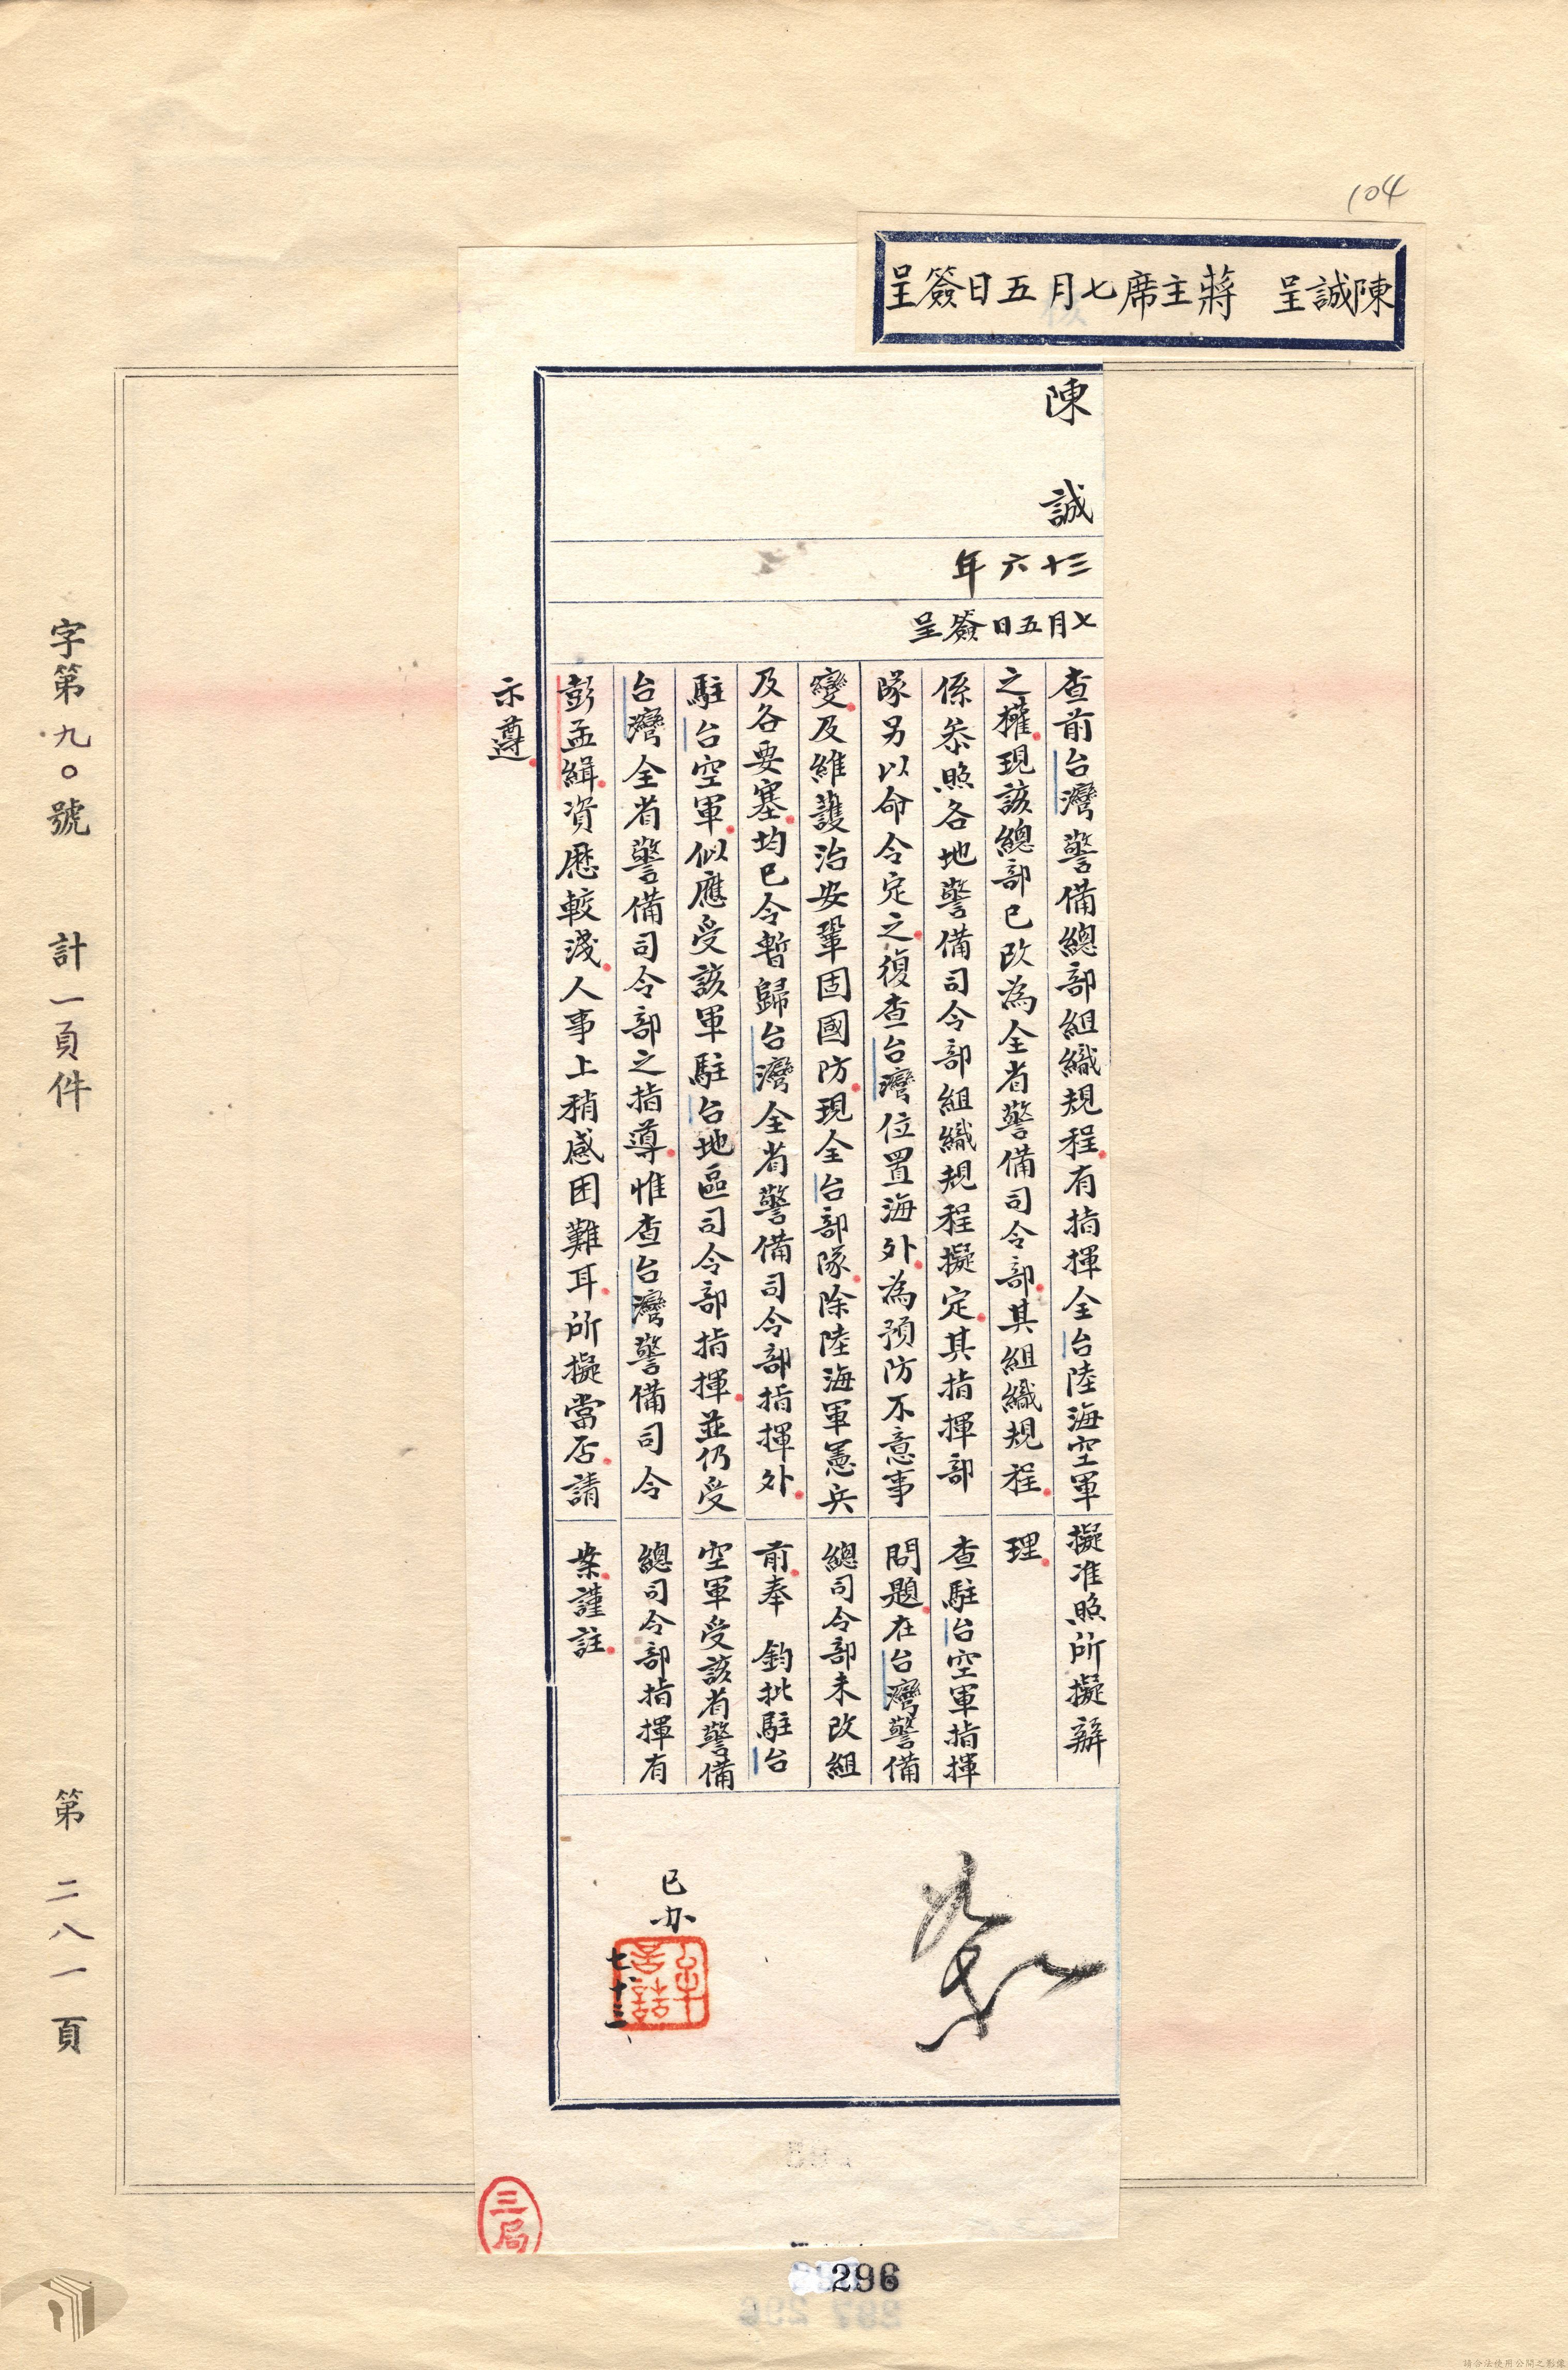 104
陳誠呈　蔣主席七月五日簽呈
陳　誠
三十六年
七月五日簽呈
查前台灣警備總部組織規程有指揮全台陸海空軍
之權現該總部已改為全省警備司令部其組織規程
係叅照各地警備司令部組織規程擬定其指揮部
隊另以命令定之復查台灣位置海外為預防不意事
變及維護治安鞏固國防現全台部隊除陸海軍憲兵
及各要塞均已令暫歸台灣全省警備司令部指揮外
駐台空軍似應受該軍駐台地區司令部指揮並仍受
台灣全省警備司令部之指導惟查台灣警備司令
彭孟緝資歷較淺人事上稍感困難耳所擬當否請
示遵
擬准照所擬辦
理
查駐台空軍指揮
問題在台灣警備
總司令部未改組
前奉　鈞批駐台
空軍受該省警備
總司令部指揮有
案謹註
已办
七、十三、
三局
字第九〇號　計一頁件　第二八一頁
296
請合法使用公開之影像